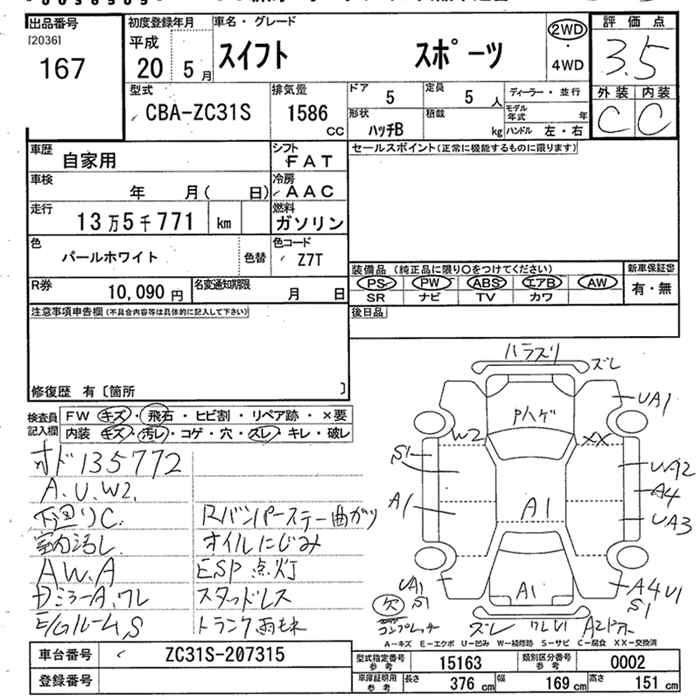 出品番号 初度登録年月 車名・グレード 評価点
[2036] 平成 スイフト スポーツ 2WD ・ 4WD 3.5
167 20 年 5 月
型式 排気量 ドア 5 定員 5 人 ディーラー・並行 外装 内装
CBA-ZC31S 1586 CC 形状 ハッチB 積載 kg モデル年式 年 C C
ハンドル 左・右
車歴 自家用 シフト FAT セールスポイント(正常に機能するものに限ります)
車検 年 月( 日) 冷房 AAC
走行 13万5千771 km 燃料 ガソリン
色 パールホワイト 色替 色コード Z7T
装備品 (純正品に限り○をつけてください) 新車保証書
R券 10,090 円 名変通知期限 月 日 PS PW ABS エアB AW 有・無
SR ナビ TV カワ
注意事項申告欄(不具合内容等は具体的に記入して下さい) 後日品
修復歴 有〔箇所 〕
検査員記入欄 FW キズ・飛石・ヒビ割・リペア跡・×要
内装 キズ・汚レ・コゲ・穴・スレ・キレ・破レ
オド135772
A.U.W2.
下廻りC. Rバンパーステー曲ガッ
室内汚レ オイルにじみ
AW.A ESP点灯
DミラーA.ワレ スタッドレス
E/GルームS トランク雨モネ
ハラスリ
ズレ
Pハゲ
UA1
W2 XX
S1
UA2
A4
A1
A1
UA3
UA1
S1
A1
A4U1
S1
欠
コンプレッサ
ズレ
ワレU1
A=キズ E=エクボ U=凹み W=補修跡 S=サビ C=腐食 XX=交換済
車台番号 ZC31S-207315 型式指定番号 参考 15163 類別区分番号 参考 0002
登録番号 車庫証明用 参考 長さ 376 cm 幅 169 cm 高さ 151 cm